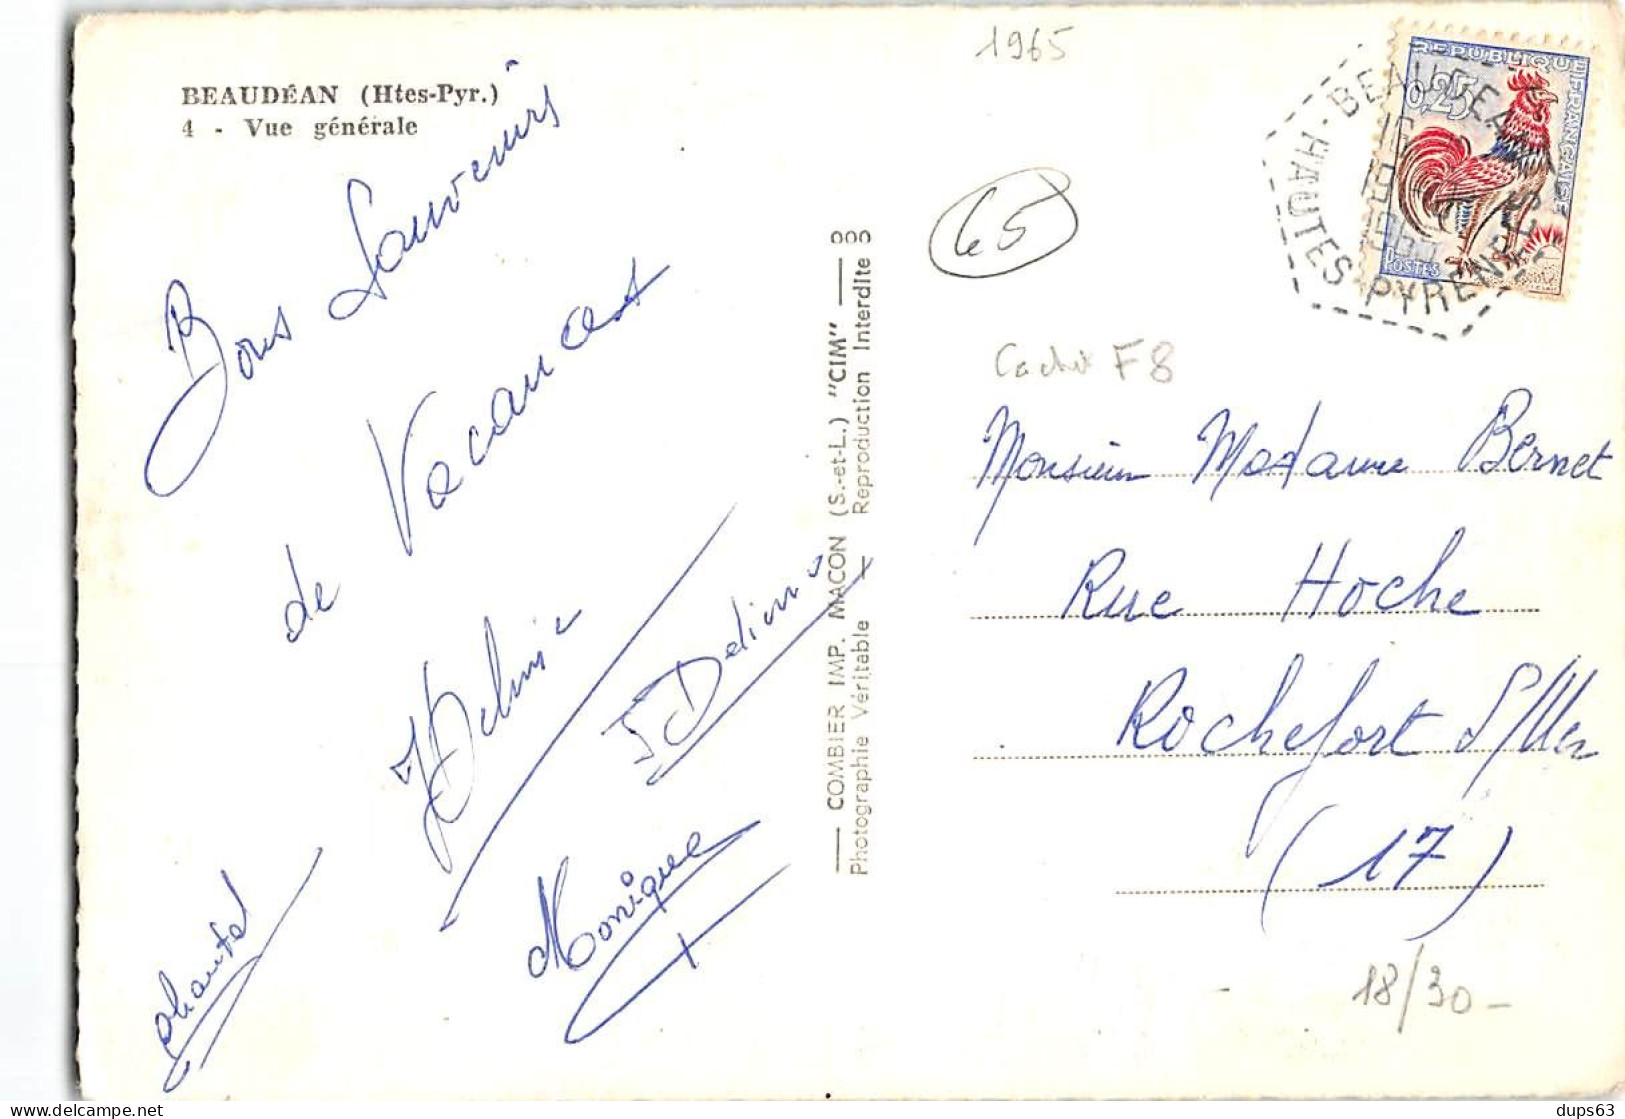 BEAUDÉAN (Htes-Pyr.)
4 - Vue générale
Bons Souvenirs
de Vacances
Monique
chantal
COMBIER IMP. MACON (S.-et-L.) "CIM"
Photographie Véritable — Reproduction Interdite
1965
65
REPUBLIQUE FRANÇAISE
0,25
POSTES
BEAUDEAN
HAUTES PYRENEES
Cachet F8
Monsieur Madame Bernet
Rue Hoche
Rochefort S/Mer
(17)
18/30-
delcampe.net
dups63